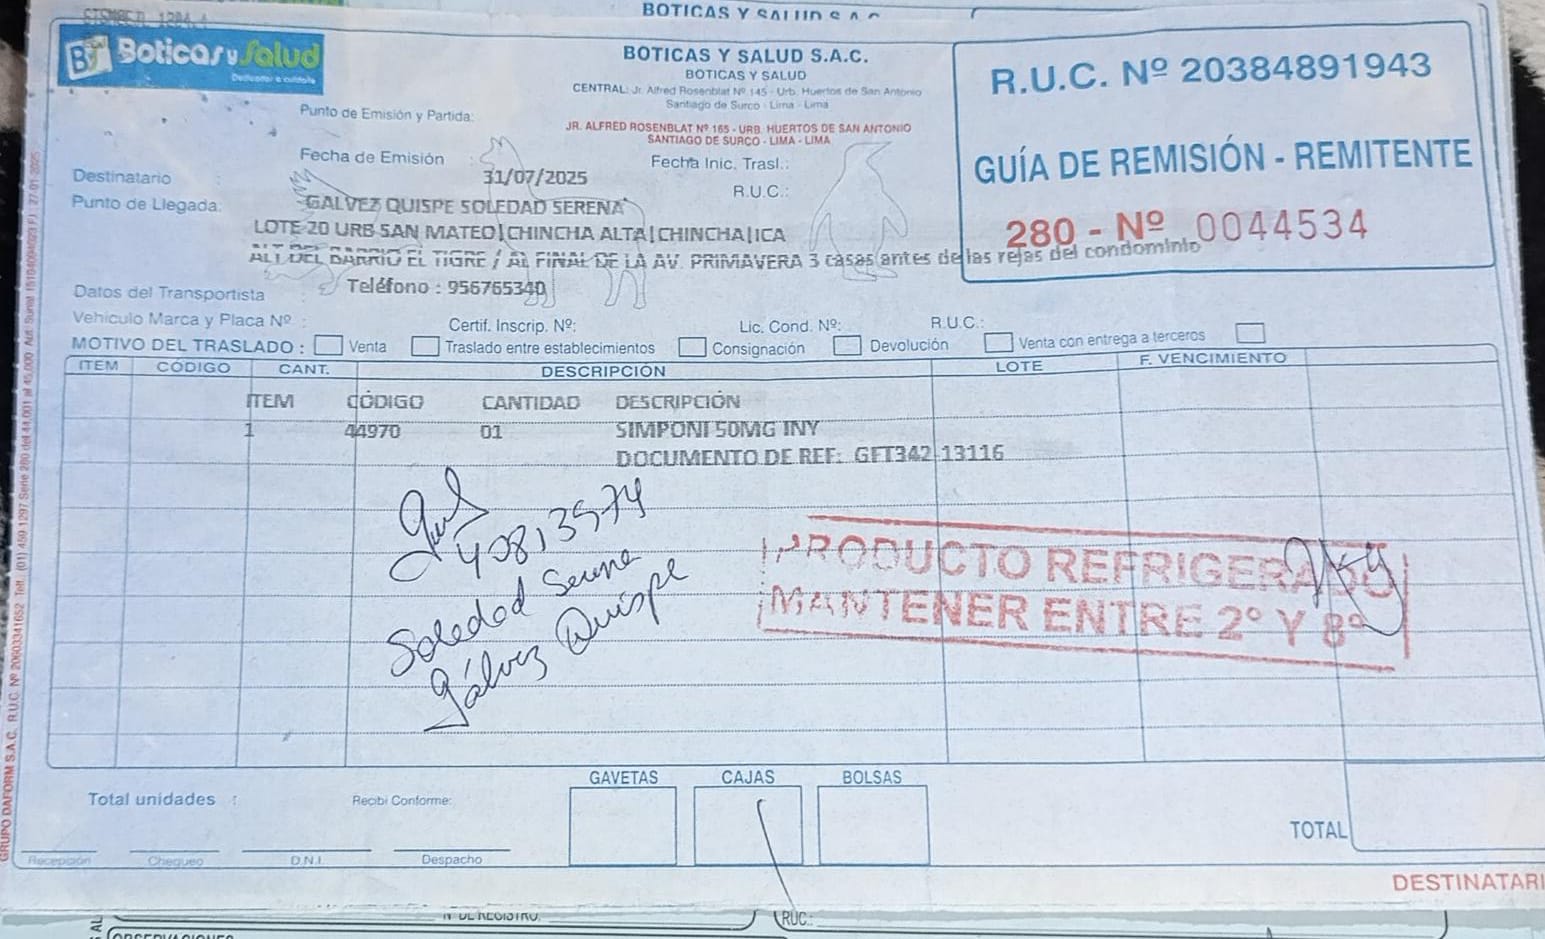 BOTICAS Y SALUD S.A.C.
Boticas y Salud
Dedicados a cuidarte
BOTICAS Y SALUD S.A.C.
BOTICAS Y SALUD
CENTRAL: Jr. Alfred Rosenblat Nº 145 - Urb. Huertos de San Antonio
Santiago de Surco - Lima - Lima
R.U.C. Nº 20384891943
GUÍA DE REMISIÓN - REMITENTE
280 - Nº 0044534
Punto de Emisión y Partida:
JR. ALFRED ROSENBLAT Nº 165 - URB. HUERTOS DE SAN ANTONIO
SANTIAGO DE SURCO - LIMA - LIMA
Fecha de Emisión : 31/07/2025 Fecha Inic. Trasl.:
Destinatario : GALVEZ QUISPE SOLEDAD SERENA R.U.C.:
Punto de Llegada: LOTE 20 URB SAN MATEO|CHINCHA ALTA|CHINCHA|ICA
ALT DEL BARRIO EL TIGRE / AL FINAL DE LA AV. PRIMAVERA 3 casas antes de las rejas del condominio
Teléfono : 956765340
Datos del Transportista
Vehículo Marca y Placa Nº : Certif. Inscrip. Nº: Lic. Cond. Nº: R.U.C.:
MOTIVO DEL TRASLADO : Venta Traslado entre establecimientos Consignación Devolución Venta con entrega a terceros
ITEM CÓDIGO CANT. DESCRIPCIÓN LOTE F. VENCIMIENTO
ITEM CÓDIGO CANTIDAD DESCRIPCIÓN
1 44970 01 SIMPONI 50MG INY
DOCUMENTO DE REF: GFT342 13116
40813574
Soledad Serena
Gálvez Quispe
PRODUCTO REFRIGERADO
MANTENER ENTRE 2° Y 8°
GAVETAS CAJAS BOLSAS
Total unidades : Recibi Conforme:
TOTAL
Recepción Chequeo D.N.I. Despacho
DESTINATARI
Nº DE REGISTRO: RUC:
OBSERVACIONES